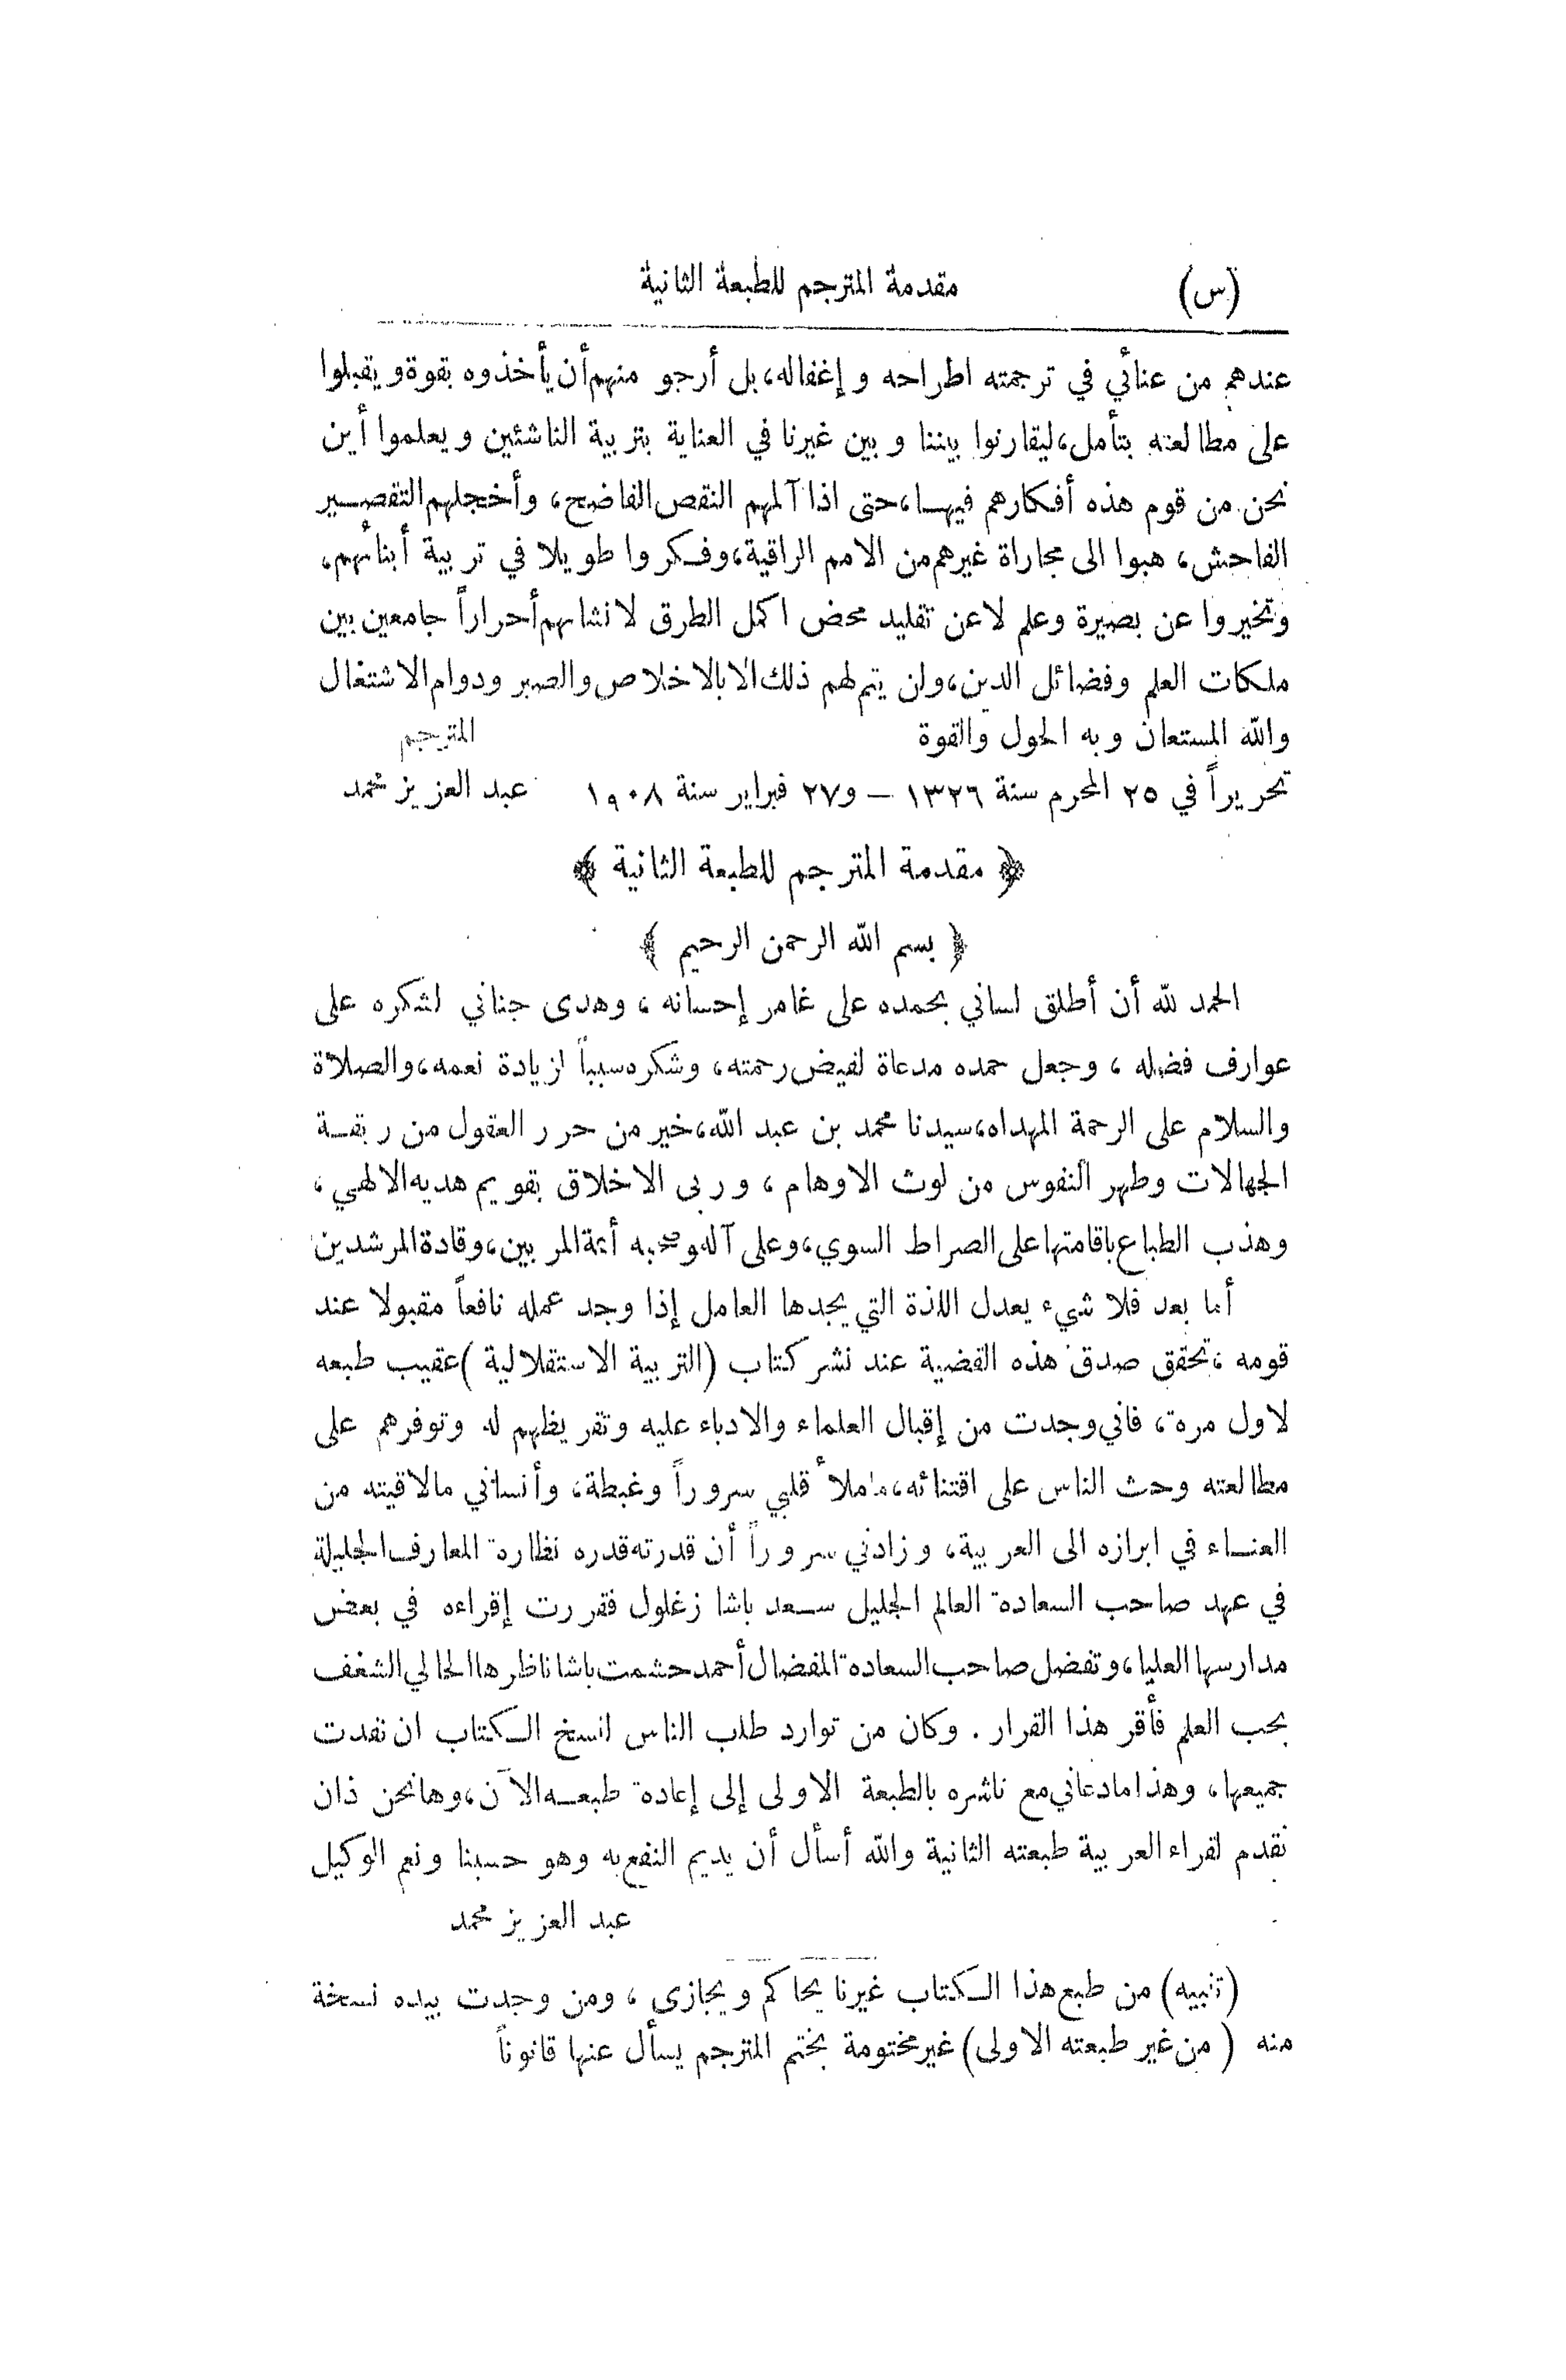 (س) مقدمة المترجم للطبعة الثانية
عندهم من عنائي في ترجمته اطراحه و إغفاله، بل أرجو منهم أن يأخذوه بقوة و يقبلوا
على مطالعته بتأمل، ليقارنوا بيننا و بين غيرنا في العناية بتربية الناشئين و يعلموا أين
نحن من قوم هذه أفكارهم فيها، حتى اذا آلمهم النقص الفاضح، وأخجلهم التقصير
الفاحش، هبوا الى مجاراة غيرهم من الامم الراقية، وفكروا طويلا في تربية أبنائهم،
وتخيروا عن بصيرة وعلم لا عن تقليد محض اكمل الطرق لانشائهم أحراراً جامعين بين
ملكات العلم وفضائل الدين، ولن يتم لهم ذلك الا بالاخلاص والصبر ودوام الاشتغال
والله المستعان وبه الحول والقوة المترجم
تحريراً في ٢٥ المحرم سنة ١٣٢٦ – و٢٧ فبراير سنة ١٩٠٨ عبد العزيز محمد
﴿ مقدمة المترجم للطبعة الثانية ﴾
﴿ بسم الله الرحمن الرحيم ﴾
الحمد لله أن أطلق لساني بحمده على غامر إحسانه، وهدى جناني لشكره على
عوارف فضله، وجعل حمده مدعاة لفيض رحمته، وشكره سبباً لزيادة نعمه، والصلاة
والسلام على الرحمة المهداه، سيدنا محمد بن عبد الله، خير من حرر العقول من ربقة
الجهالات وطهر النفوس من لوث الاوهام، وربى الاخلاق بقويم هديه الالهي،
وهذب الطباع باقامتها على الصراط السوي، وعلى آله وصحبه أئمة المربين، وقادة المرشدين
أما بعد فلا شيء يعدل اللذة التي يجدها العامل إذا وجد عمله نافعاً مقبولا عند
قومه، تحقق صدق هذه القضية عند نشر كتاب (التربية الاستقلالية) عقيب طبعه
لاول مرة، فاني وجدت من إقبال العلماء والادباء عليه وتقريظهم له وتوفرهم على
مطالعته وحث الناس على اقتنائه، ما ملأ قلبي سروراً وغبطة، وأنساني مالاقيته من
العناء في ابرازه الى العربية، وزادني سروراً أن قدرته قدره نظارة المعارف الجليلة
في عهد صاحب السعادة العالم الجليل سعد باشا زغلول فقررت إقراءه في بعض
مدارسها العليا، وتفضل صاحب السعادة المفضال أحمد حشمت باشا ناظرها الحالي الشغف
بحب العلم فأقر هذا القرار. وكان من توارد طلب الناس لنسخ الكتاب ان نفدت
جميعها، وهذا مادعاني مع ناشره بالطبعة الاولى إلى إعادة طبعه الآن، وهانحن ذان
نقدم لقراء العربية طبعته الثانية والله أسأل أن يديم النفع به وهو حسبنا ونعم الوكيل
عبد العزيز محمد
(تنبيه) من طبع هذا الكتاب غيرنا يحاكم ويجازى، ومن وجدت بيده نسخة
منه (من غير طبعته الاولى) غير مختومة بختم المترجم يسأل عنها قانوناً